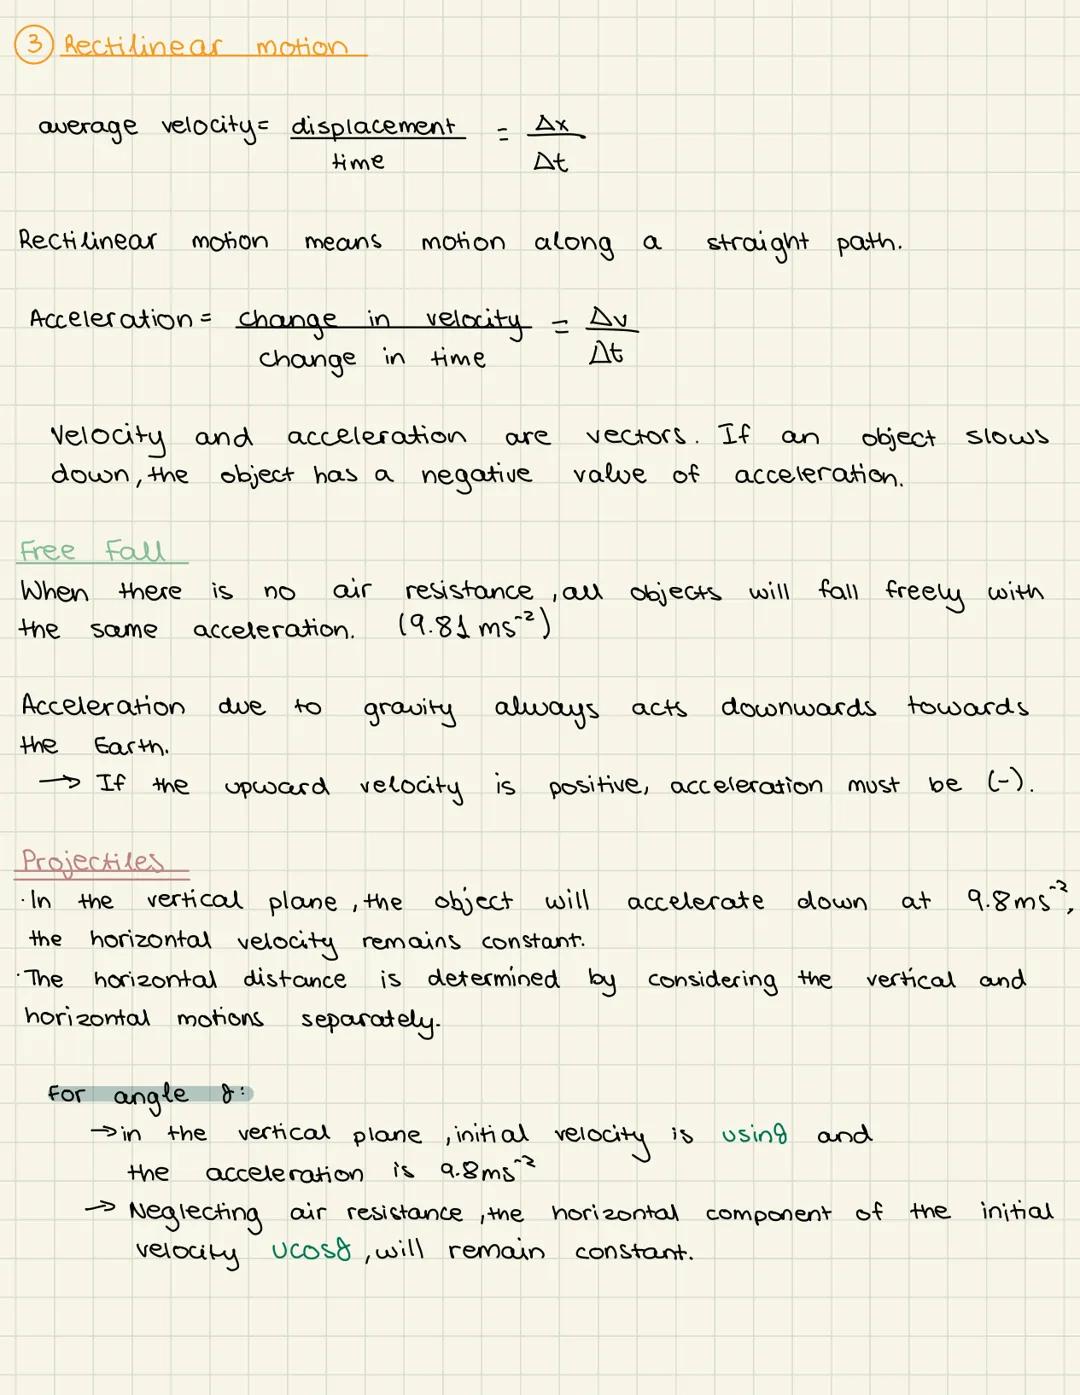 3 Rectilinear motion
average velocity = displacement = Δx
time Δt
Rectilinear motion means motion along a straight path.
Acceleration = change in velocity = Δv
change in time Δt
Velocity and acceleration are vectors. If an object slows
down, the object has a negative value of acceleration.
Free Fall
When there is no air resistance, all objects will fall freely with
the same acceleration. (9.81 ms⁻²)
Acceleration due to gravity always acts downwards towards
the Earth.
→ If the upward velocity is positive, acceleration must be (-).
Projectiles
· In the vertical plane, the object will accelerate down at 9.8ms⁻²,
the horizontal velocity remains constant.
· The horizontal distance is determined by considering the vertical and
horizontal motions separately.
For angle θ:
→ in the vertical plane, initial velocity is usinθ and
the acceleration is 9.8ms⁻²
→ Neglecting air resistance, the horizontal component of the initial
velocity ucosθ, will remain constant.